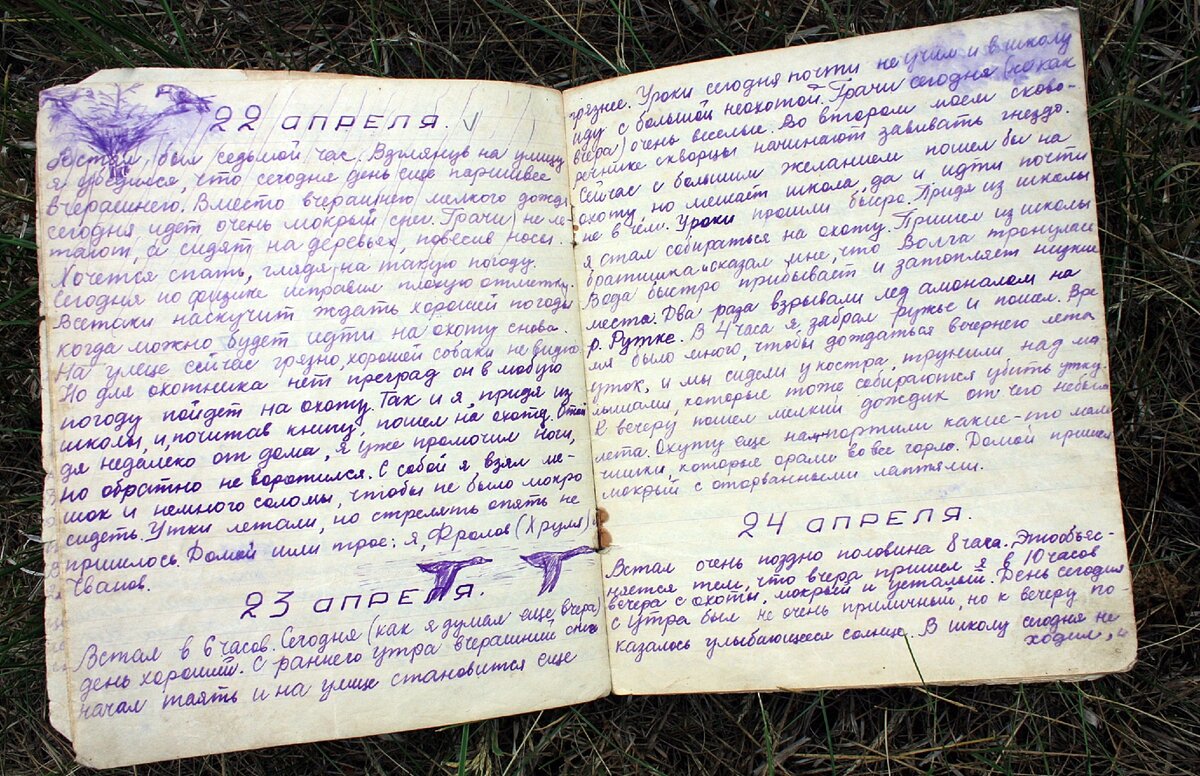 22 АПРЕЛЯ.
Встал, был седьмой час. Взглянув на улицу
я убедился, что сегодня день еще паршивее
вчерашнего. Вместо вчерашнего мелкого дождя
сегодня идет очень мокрый снег. Грачи не ле-
тают, а сидят на деревьях, повесив носы.
Хочется спать, глядя на такую погоду.
Сегодня по физике исправил плохую отметку.
Всетаки наскучит ждать хорошей погоды
когда можно будет идти на охоту снова.
На улице сейчас грязно, хорошей собаки не видно
Но для охотника нет преград он в любую
погоду пойдет на охоту. Так и я, придя из
школы, и, почитав книгу, пошел на охоту. Отой
дя недалеко от дома, я уже промочил ноги,
но обратно не воротился. С собой я взял ме-
шок и немного соломы, чтобы не было мокро
сидеть. Утки летали, но стрелять опять не
пришлось. Домой шли трое: я, Фролов (Хруля) и
Иванов.
23 АПРЕЛЯ.
Встал в 6 часов. Сегодня (как я думал еще вчера)
день хороший. С раннего утра вчерашний снег
начал таять и на улице становится еще
грязнее. Уроки сегодня почти не учил и в школу
иду с большой неохотой. Грачи сегодня (не как
вчера) очень веселые. Во втором моем сково-
речнике скворцы начинают завивать гнездо.
Сейчас с большим желанием пошел бы на
охоту, но мешает школа, да и идти почти
не в чем. Уроки прошли быстро. Придя из школы
я стал собираться на охоту. Пришел из школы
братишка и сказал мне, что Волга тронулась
Вода быстро прибывает и затопляет низкие
места. Два раза взрывали лед амоналом на
р. Рутке. В 4 часа я забрал ружье и пошел. Вре
мя было много, чтобы дождаться вечернего лета
уток, и мы сидели у костра, трунили над ма
лышами, которые тоже собираются убить утку.
К вечеру пошел мелкий дождик от чего небыло
лета. Охоту еще нам портили какие-то маль
чишки, которые орали во все горло. Домой пришел
мокрый с оторванными лаптями.
24 АПРЕЛЯ.
Встал очень поздно половина 8 часа. Этообъяс-
няется тем, что вчера пришел я в 10 часов
вечера с охоты, мокрый и усталый. День сегодня
с утра был не очень приличный, но к вечеру по-
казалось улыбающееся солнце. В школу сегодня не
ходил, и